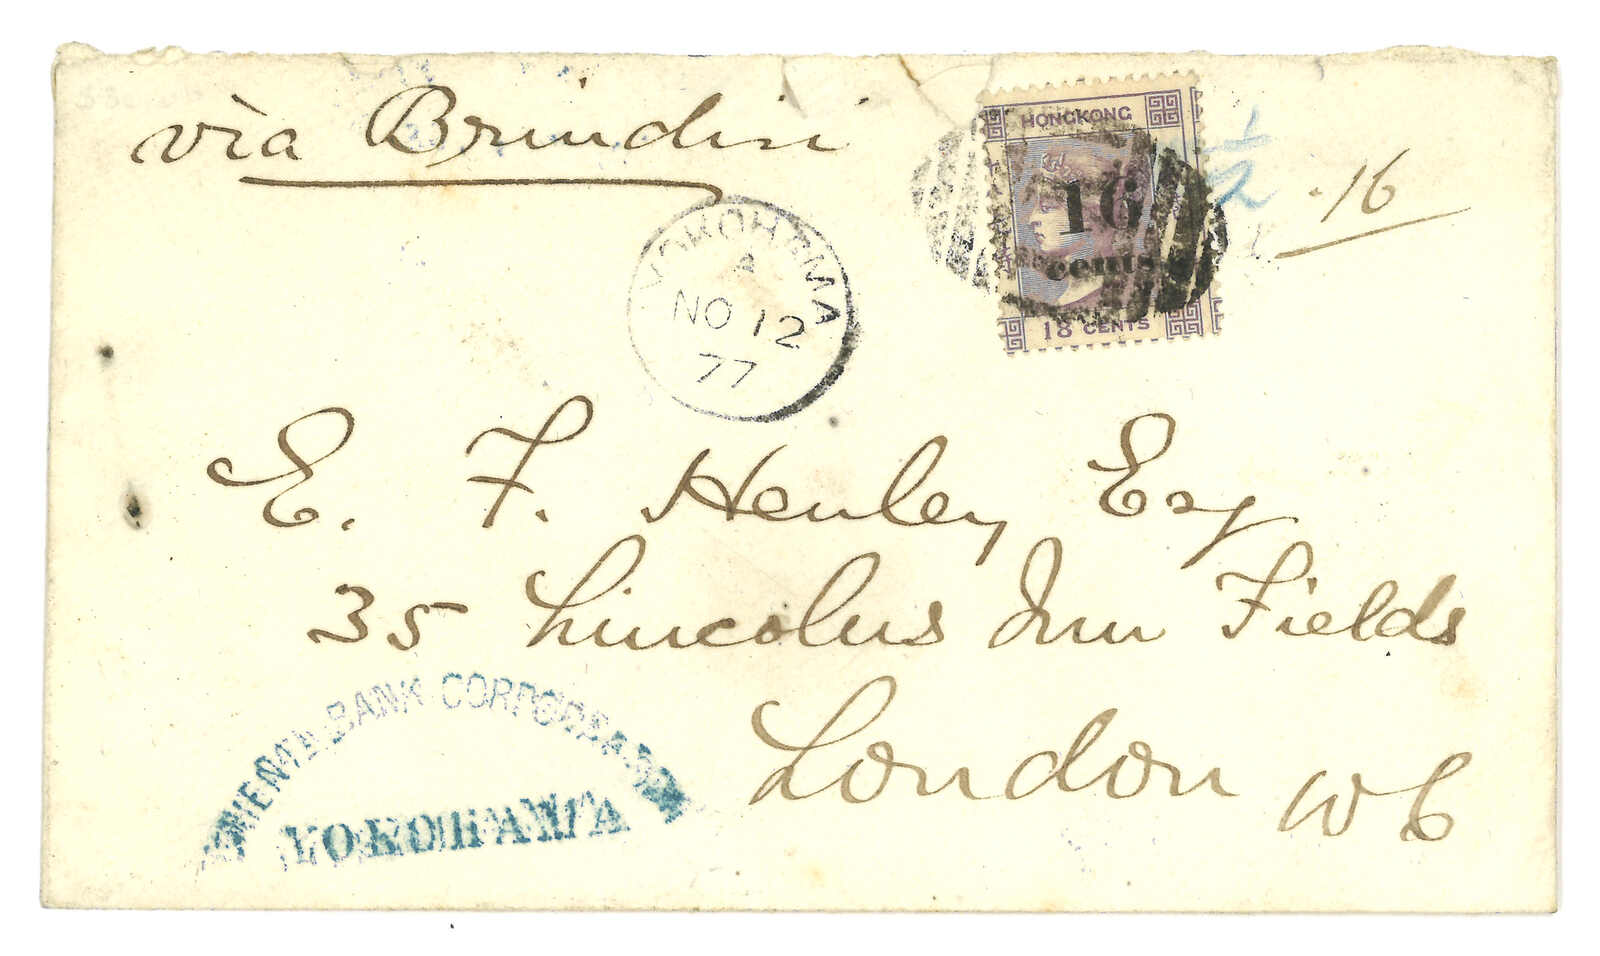 via Brindisi
HONGKONG
16
cents.
18 CENTS
·16
YOKOHAMA
A
NO 12
77
E. F. Henley Esq
35 Lincolns Inn Fields
London W C
ORIENTAL BANK CORPORATION
YOKOHAMA